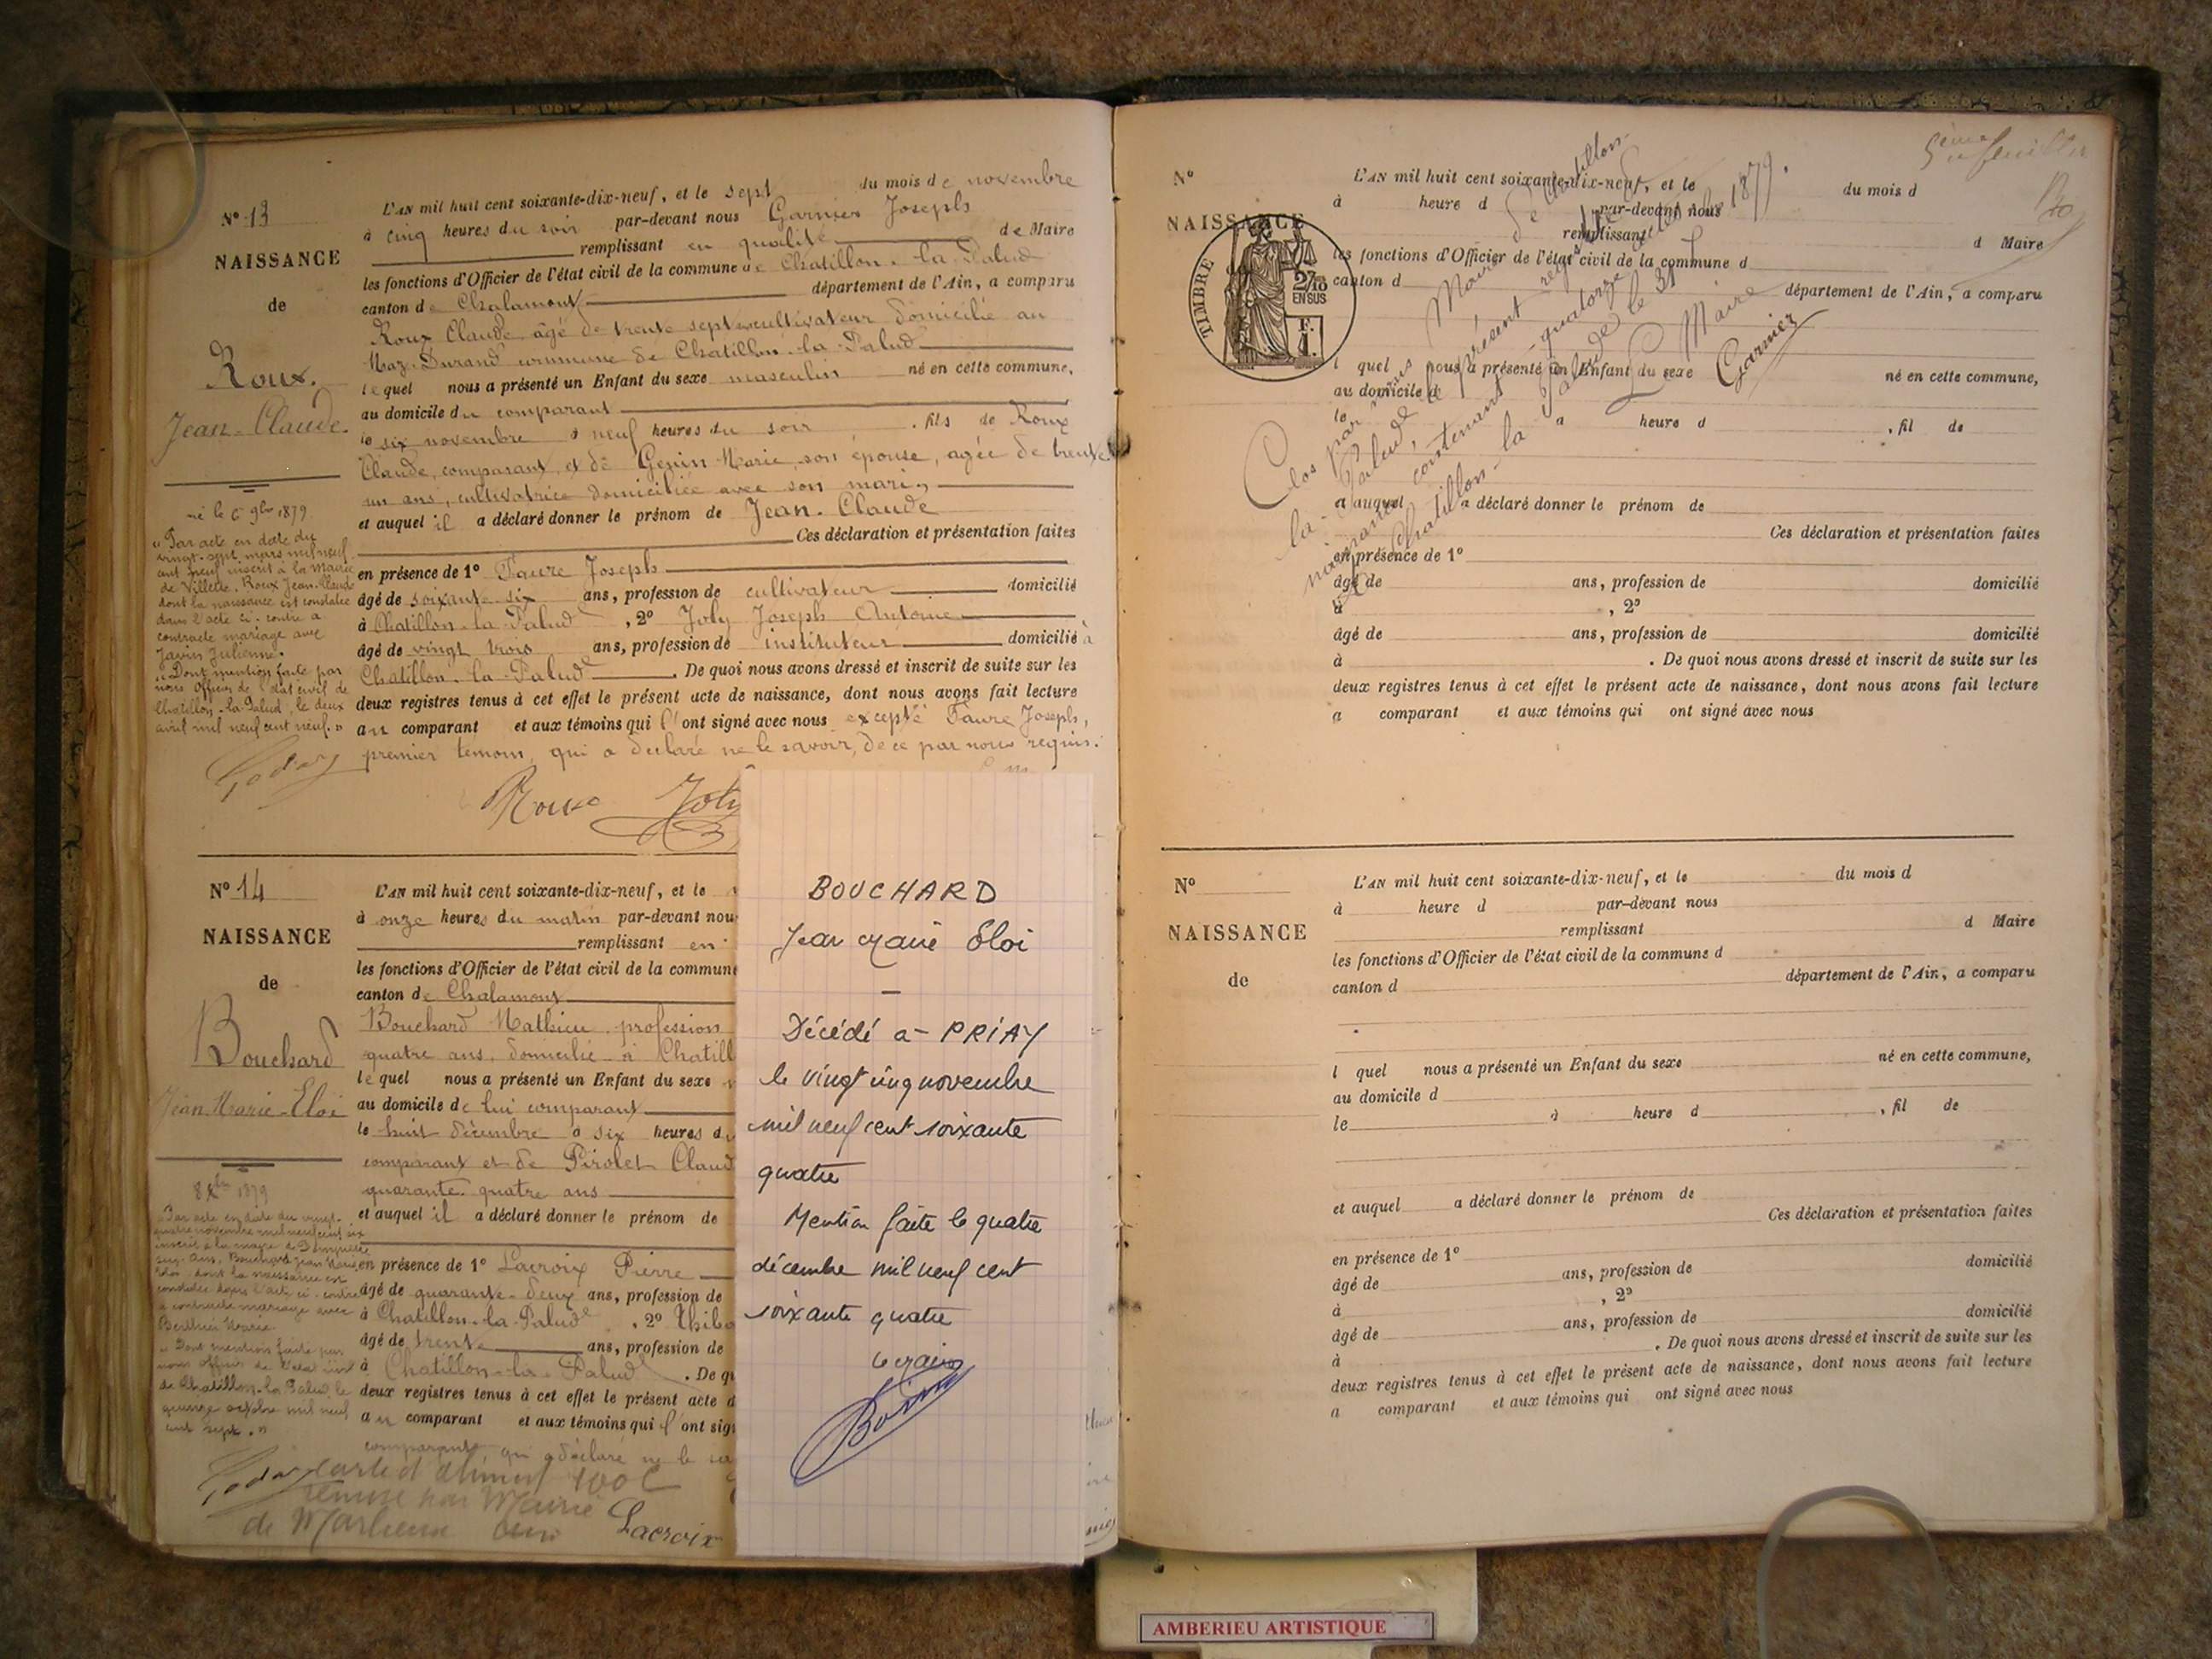 N° 13
NAISSANCE
de
Roux.
Jean-Claude.
né le 6 9bre 1879
« Par acte en date du
vingt-sept mars mil neuf
cent neuf inscrit à la Mairie
de Villette, Roux Jean-Claude
dont la naissance est constatée
dans l'acte ci-contre a
contracté mariage avec
Javin Julienne.
« Dont mention faite par
nous Officier de l'état civil de
Chatillon-la-Palud, le deux
avril mil neuf cent neuf. »
L'AN mil huit cent soixante-dix-neuf, et le sept du mois de novembre
à cinq heures du soir par-devant nous Garnier Joseph
remplissant en qualité de Maire
les fonctions d'Officier de l'état civil de la commune de Chatillon-la-Palud
canton de Chalamont département de l'Ain, a comparu
Roux Claude âgé de trente sept cultivateur domicilié au
Maz-Durand commune de Chatillon-la-Palud
lequel nous a présenté un Enfant du sexe masculin né en cette commune,
au domicile du comparant
le six novembre à neuf heures du soir , fils de Roux
Claude, comparant, et de Genin Marie, son épouse, agée de trente
un ans, cultivatrice domiciliée avec son mari,
et auquel il a déclaré donner le prénom de Jean-Claude
Ces déclaration et présentation faites
en présence de 1° Faure Joseph
âgé de soixante-six ans, profession de cultivateur domicilié
à Chatillon-la-Palud , 2° Joly Joseph Antoine
âgé de vingt trois ans, profession de instituteur domicilié à
Chatillon-la-Palud . De quoi nous avons dressé et inscrit de suite sur les
deux registres tenus à cet effet le présent acte de naissance, dont nous avons fait lecture
au comparant et aux témoins qui l'ont signé avec nous excepté Faure Joseph,
premier temoin, qui a déclaré ne le savoir, de ce par nous requis.
Roux Joly
N° 14
NAISSANCE
de
Bouchard
Jean-Marie-Eloi
8 Xbre 1879
« Par acte en date du vingt-
quatre novembre mil neuf cent six
inscrit à la mairie de
Bouchard Jean Marie
Eloi dont la naissance est
constatée dans l'acte ci-contre
a contracté mariage avec
Berthier Marie
« Dont mention faite par
nous Officier de l'état civil
de Chatillon-la-Palud, le
quinze octobre mil neuf
cent sept. »
L'AN mil huit cent soixante-dix-neuf, et le
à onze heures du matin par-devant nou
remplissant en
les fonctions d'Officier de l'état civil de la commune
canton de Chalamont
Bouchard Mathieu, profession
quatre ans, domicilié à Chatill
lequel nous a présenté un Enfant du sexe
au domicile de lui comparant
le huit décembre à six heures du
comparant et de Pirolet Claud
quarante quatre ans
et auquel il a déclaré donner le prénom de
en présence de 1° Lacroix Pierre
âgé de quarante-deux ans, profession de
à Chatillon-la-Palud , 2° Thibo
âgé de trente ans, profession de
à Chatillon-la-Palud . De qu
deux registres tenus à cet effet le présent acte d
au comparant et aux témoins qui l'ont sig
comparant qui a déclaré ne le sa
Lacroix
BOUCHARD
Jean Marie Eloi
—
Décédé à PRIAY
le vingt cinq novembre
mil neuf cent soixante
quatre
Mention faite le quatre
décembre mil neuf cent
soixante quatre
Le Maire
5ème feuillet
N°
NAISSANCE
TIMBRE
2/10
EN SUS
L'AN mil huit cent soixante-dix-neuf, et le du mois d
à heure d par-devant nous
remplissant d Maire
les fonctions d'Officier de l'état civil de la commune d
canton d département de l'Ain, a comparu
l quel nous a présenté un Enfant du sexe né en cette commune,
au domicile d
le à heure d , fil de
et auquel a déclaré donner le prénom de
Ces déclaration et présentation faites
en présence de 1°
âgé de ans, profession de domicilié
à , 2°
âgé de ans, profession de domicilié
à . De quoi nous avons dressé et inscrit de suite sur les
deux registres tenus à cet effet le présent acte de naissance, dont nous avons fait lecture
a comparant et aux témoins qui ont signé avec nous
Clos par nous Maire de Chatillon
la-Palud, le présent registre de
naissance contenant quatorze actes
à Chatillon-la-Palud le 31 Xbre 1879.
Le Maire
Garnier
N°
NAISSANCE
de
L'AN mil huit cent soixante-dix-neuf, et le du mois d
à heure d par-devant nous
remplissant d Maire
les fonctions d'Officier de l'état civil de la commune d
canton d département de l'Ain, a comparu
l quel nous a présenté un Enfant du sexe né en cette commune,
au domicile d
le à heure d , fil de
et auquel a déclaré donner le prénom de
Ces déclaration et présentation faites
en présence de 1°
âgé de ans, profession de domicilié
à , 2°
âgé de ans, profession de domicilié
à . De quoi nous avons dressé et inscrit de suite sur les
deux registres tenus à cet effet le présent acte de naissance, dont nous avons fait lecture
a comparant et aux témoins qui ont signé avec nous
AMBERIEU ARTISTIQUE